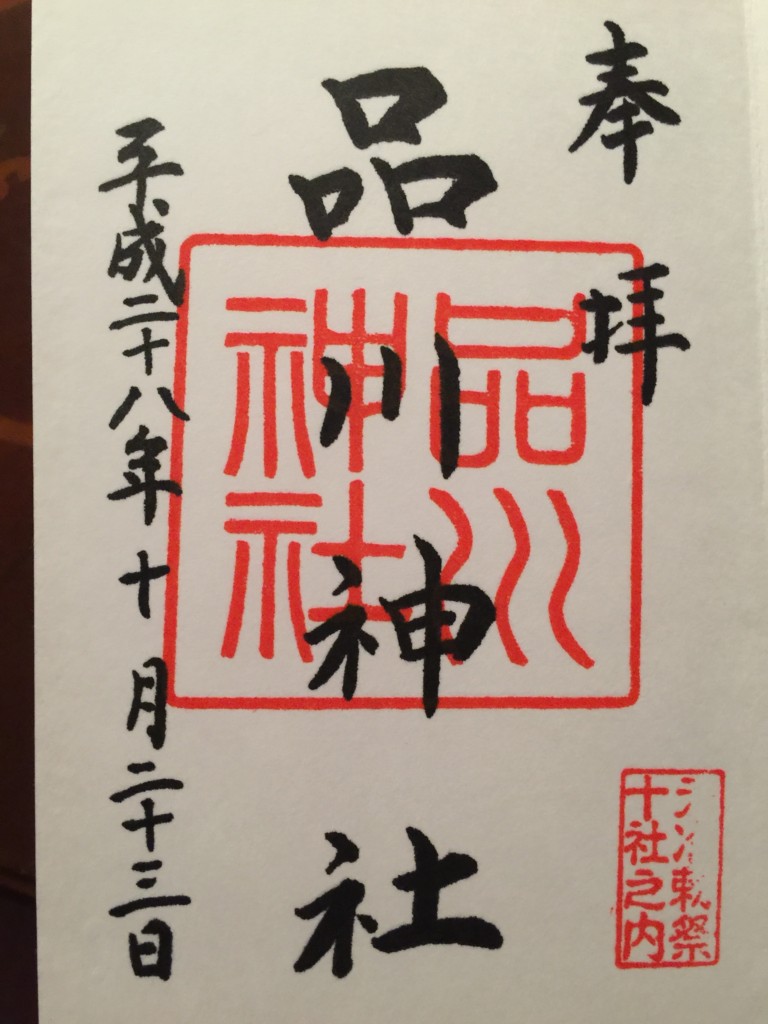 奉拝
品川神社
平成二十八年十月二十三日
品川
神社
勅祭
十社之内